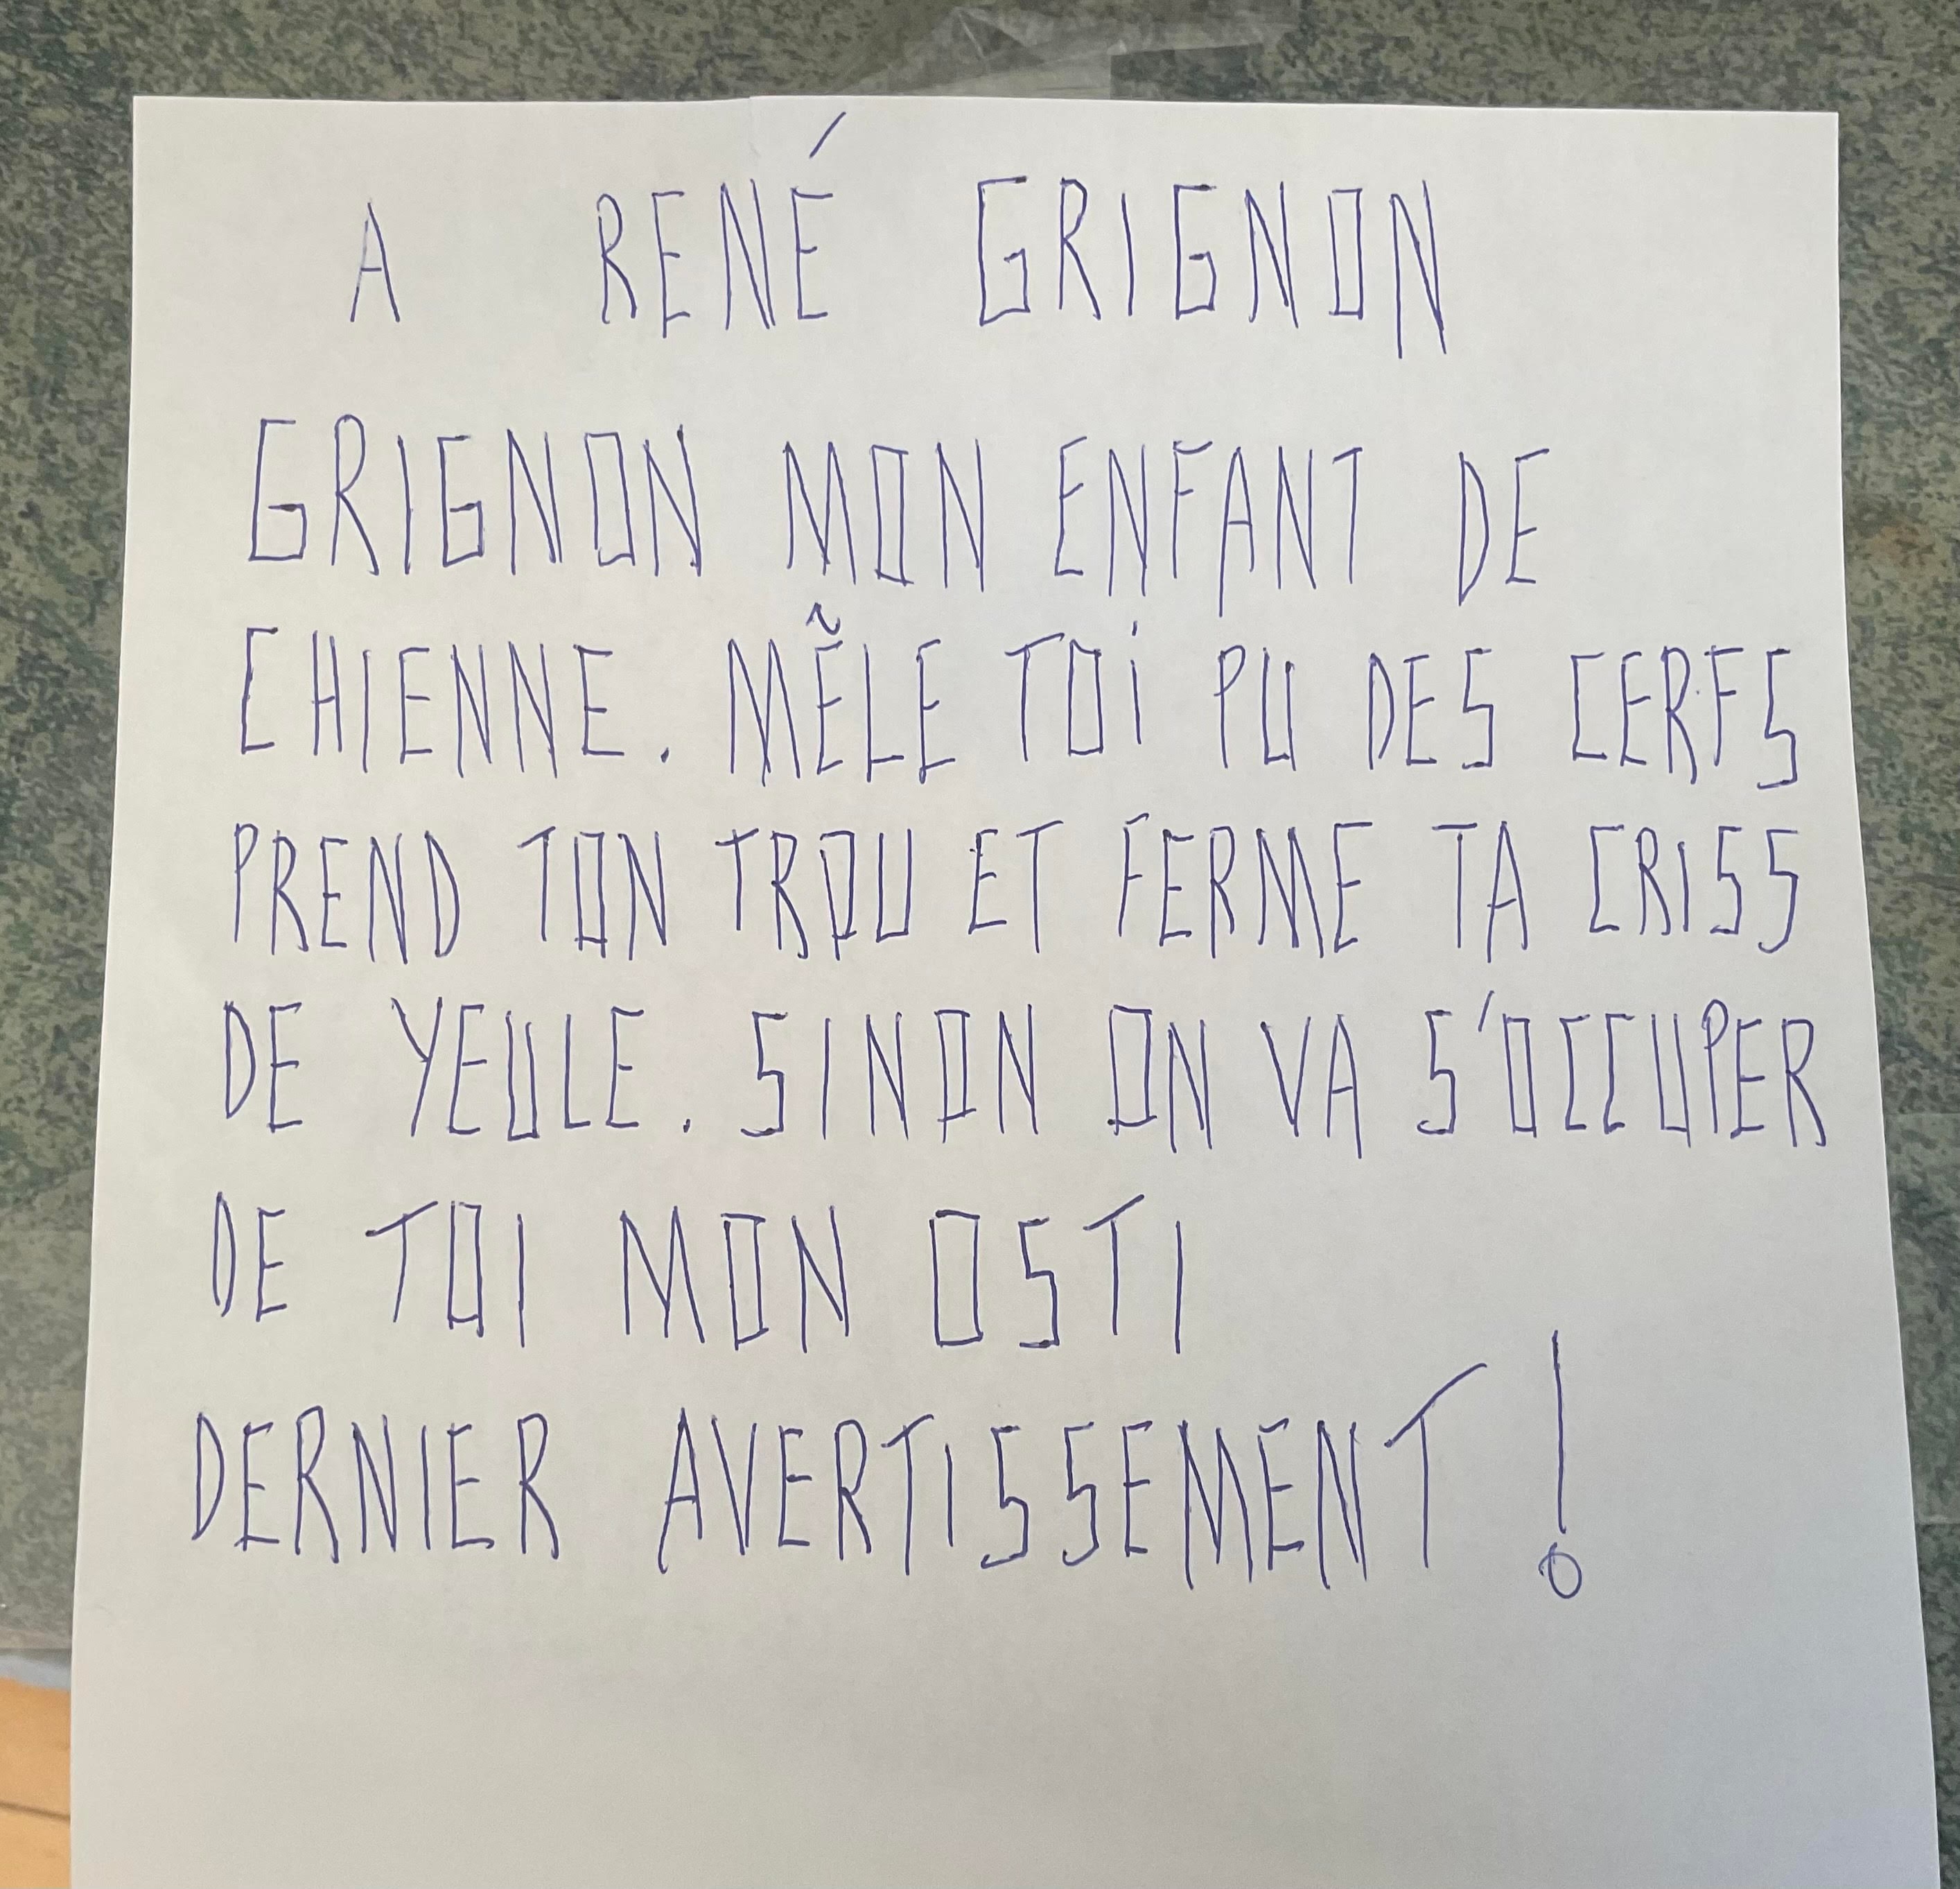 A RENÉ GRIGNON
GRIGNON MON ENFANT DE
CHIENNE. MÊLE TOI PU DES CERFS
PREND TON TROU ET FERME TA CRISS
DE YEULE. SINON ON VA S'OCCUPER
DE TOI MON OSTI
DERNIER AVERTISSEMENT !